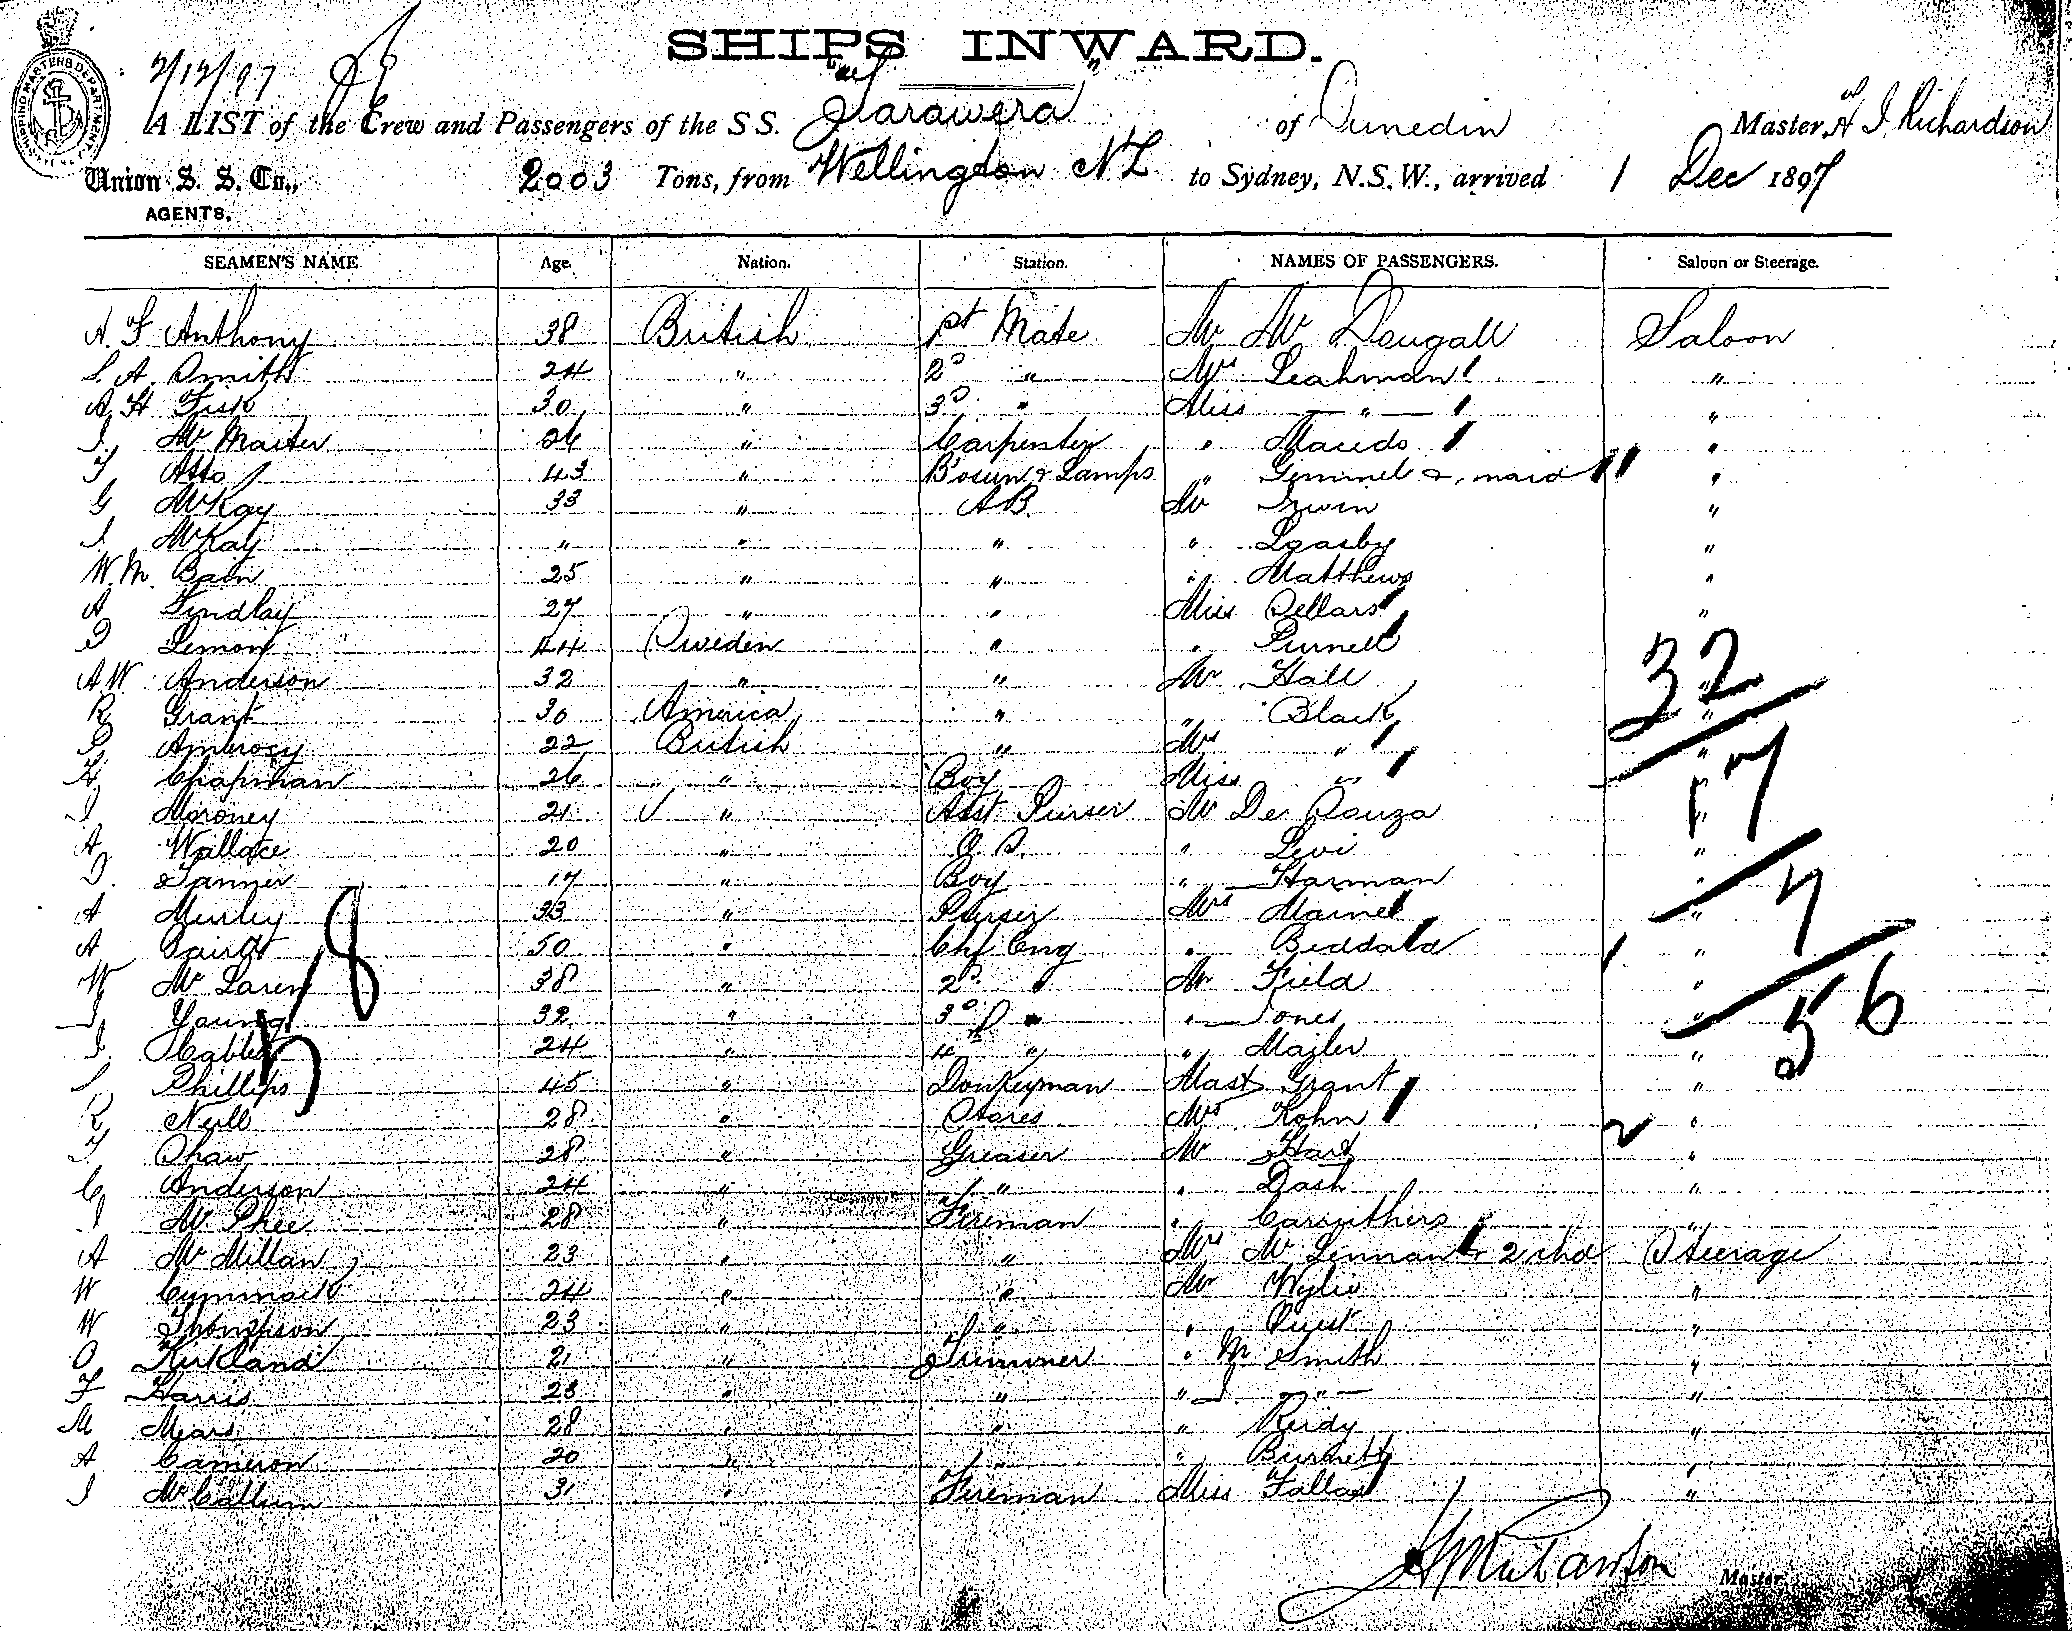 SHIPS INWARD.
2/12/97
A LIST of the Crew and Passengers of the SS. "Tarawera" of Dunedin Master, H J Richardson
Union S. S. Co., 2003 Tons, from Wellington NZ to Sydney, N.S.W., arrived 1 Dec 1897
AGENTS.
SEAMEN'S NAME Age. Nation. Station. NAMES OF PASSENGERS. Saloon or Steerage.
A. F Anthony 38 British 1st Mate Mr Mc Dougall Saloon
S A Smith 24 " 2d " Mrs Leahman "
A H Fisk 30 " 3d " Miss — " — "
J. Mc Master 26 " Carpenter " Maudo "
T Atto 43 " B'osun & Lamps " Gemmel & maid "
G McKay 33 " AB. Mr Irwin "
J. McKay " " " " Leasby "
W. M. Bain 25 " " " Matthews "
A Findlay 27 " " Miss Sellars "
P Lemon 44 Sweden " " Purnell "
A W Anderson 32 " " Mr Hall "
R Grant 30 America " " Black "
P Ambrosy 22 British " Mrs " "
H Chapman 26 " Boy Miss " "
J Moroney 21 " Asst Purser Mr De Souza "
A Wallace 20 " O S. " Levi "
D. Tanner 17 " Boy " Harman "
A Murley 33 " Purser Mrs Marnel "
A Baird 50 " Chf Eng " Beddard "
W Mc Laren 38 " 2d " Mr Field "
J Young 32 " 3d " " Jones "
J. Cable 24 " 4th " " Majler "
S Phillips 45 " Donkeyman Mast Grant "
R Neill 28 " Stores Mrs Kohn "
T Shaw 28 " Greaser Mr Hart "
C Anderson 24 " " " Dash "
J Mc Phee 28 " Fireman " Caruthers "
A Mc Millan 23 " " Mrs Mc Lennan & 2 chd Steerage
W Cymmack 24 " " Mr Wylie "
W Thompson 23 " " " Quist "
O Kirkland 21 " Trimmer " M Smith "
F Harris 23 " " " J. — " — "
M Mears 28 " " " Reidy "
A Cameron 20 " " " Burnett "
J McCallum 31 " Fireman Miss Fallas "
32
17
7
56
18
17
Master.